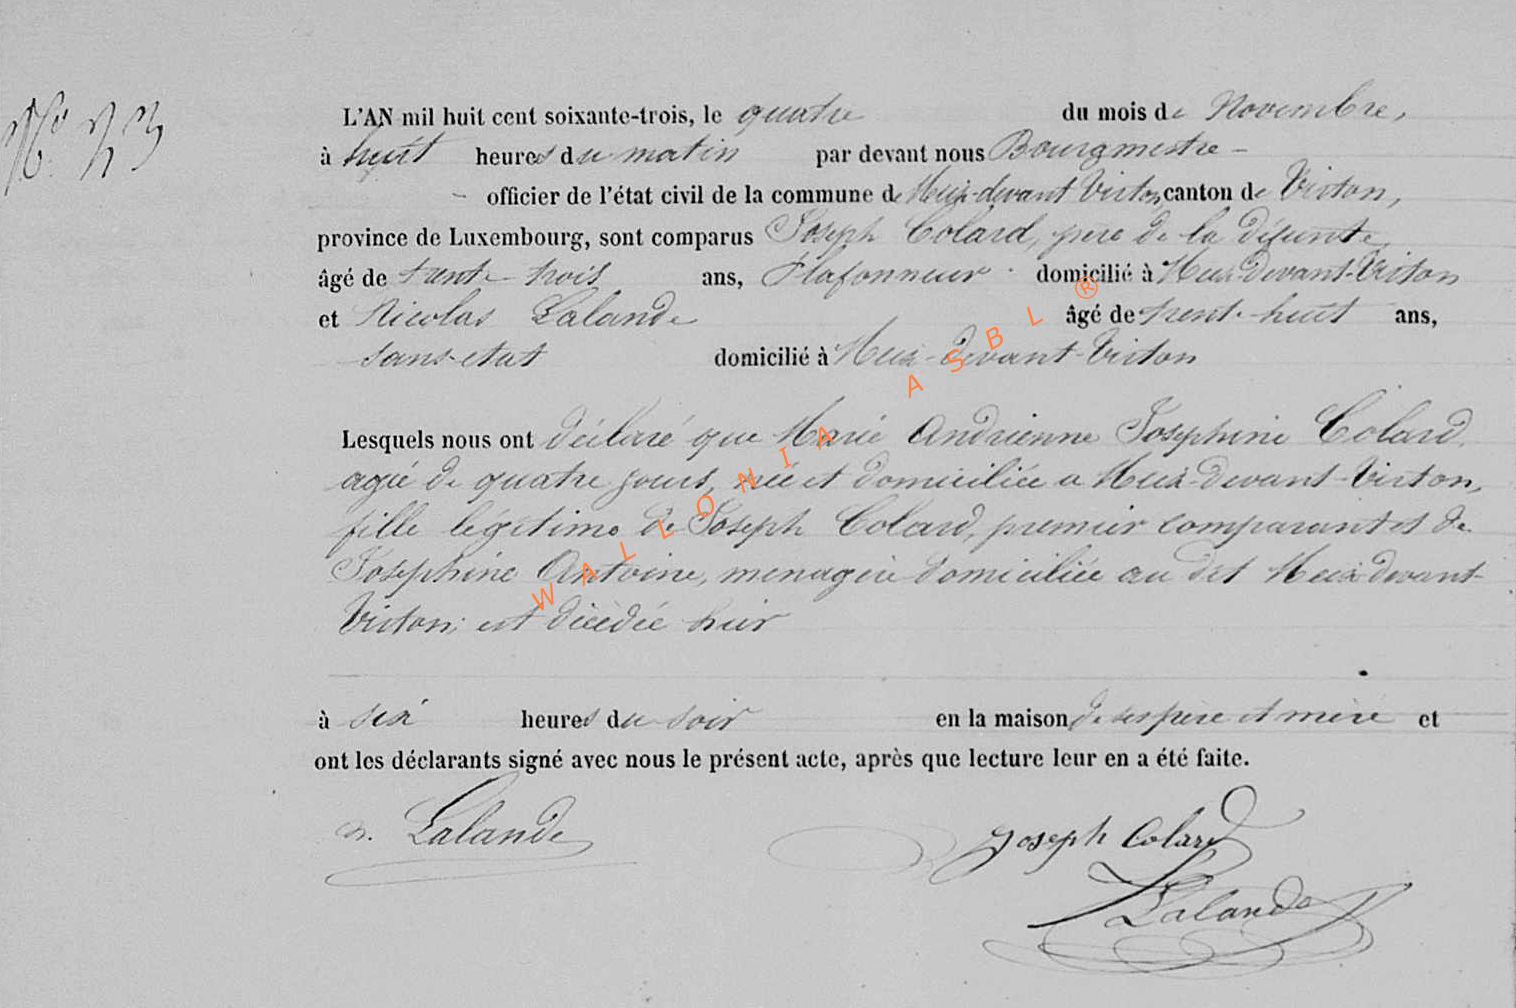 No 23
L'AN mil huit cent soixante-trois, le quatre du mois de Novembre,
à huit heures du matin par devant nous Bourgmestre -
- officier de l'état civil de la commune de Meix-devant Virton, canton de Virton,
province de Luxembourg, sont comparus Joseph Colard, père de la défunte,
âgé de trente-trois ans, Plafonneur domicilié à Meix-devant-Virton
et Nicolas Lalande âgé de trente-huit ans,
sans-état domicilié à Meix-devant-Virton
Lesquels nous ont déclaré que Marie Andrienne Josephine Colard,
agée de quatre jours, née et domiciliée a Meix-devant-Virton,
fille légitime de Joseph Colard, premier comparant et de
Josephine Antoine, menagère domiciliée au dit Meix-devant-
Virton; est décédée hier
à six heures du soir en la maison de ses père et mère et
ont les déclarants signé avec nous le présent acte, après que lecture leur en a été faite.
n. Lalande
Joseph Colard
Lalande
WALLONIA ASBL ®